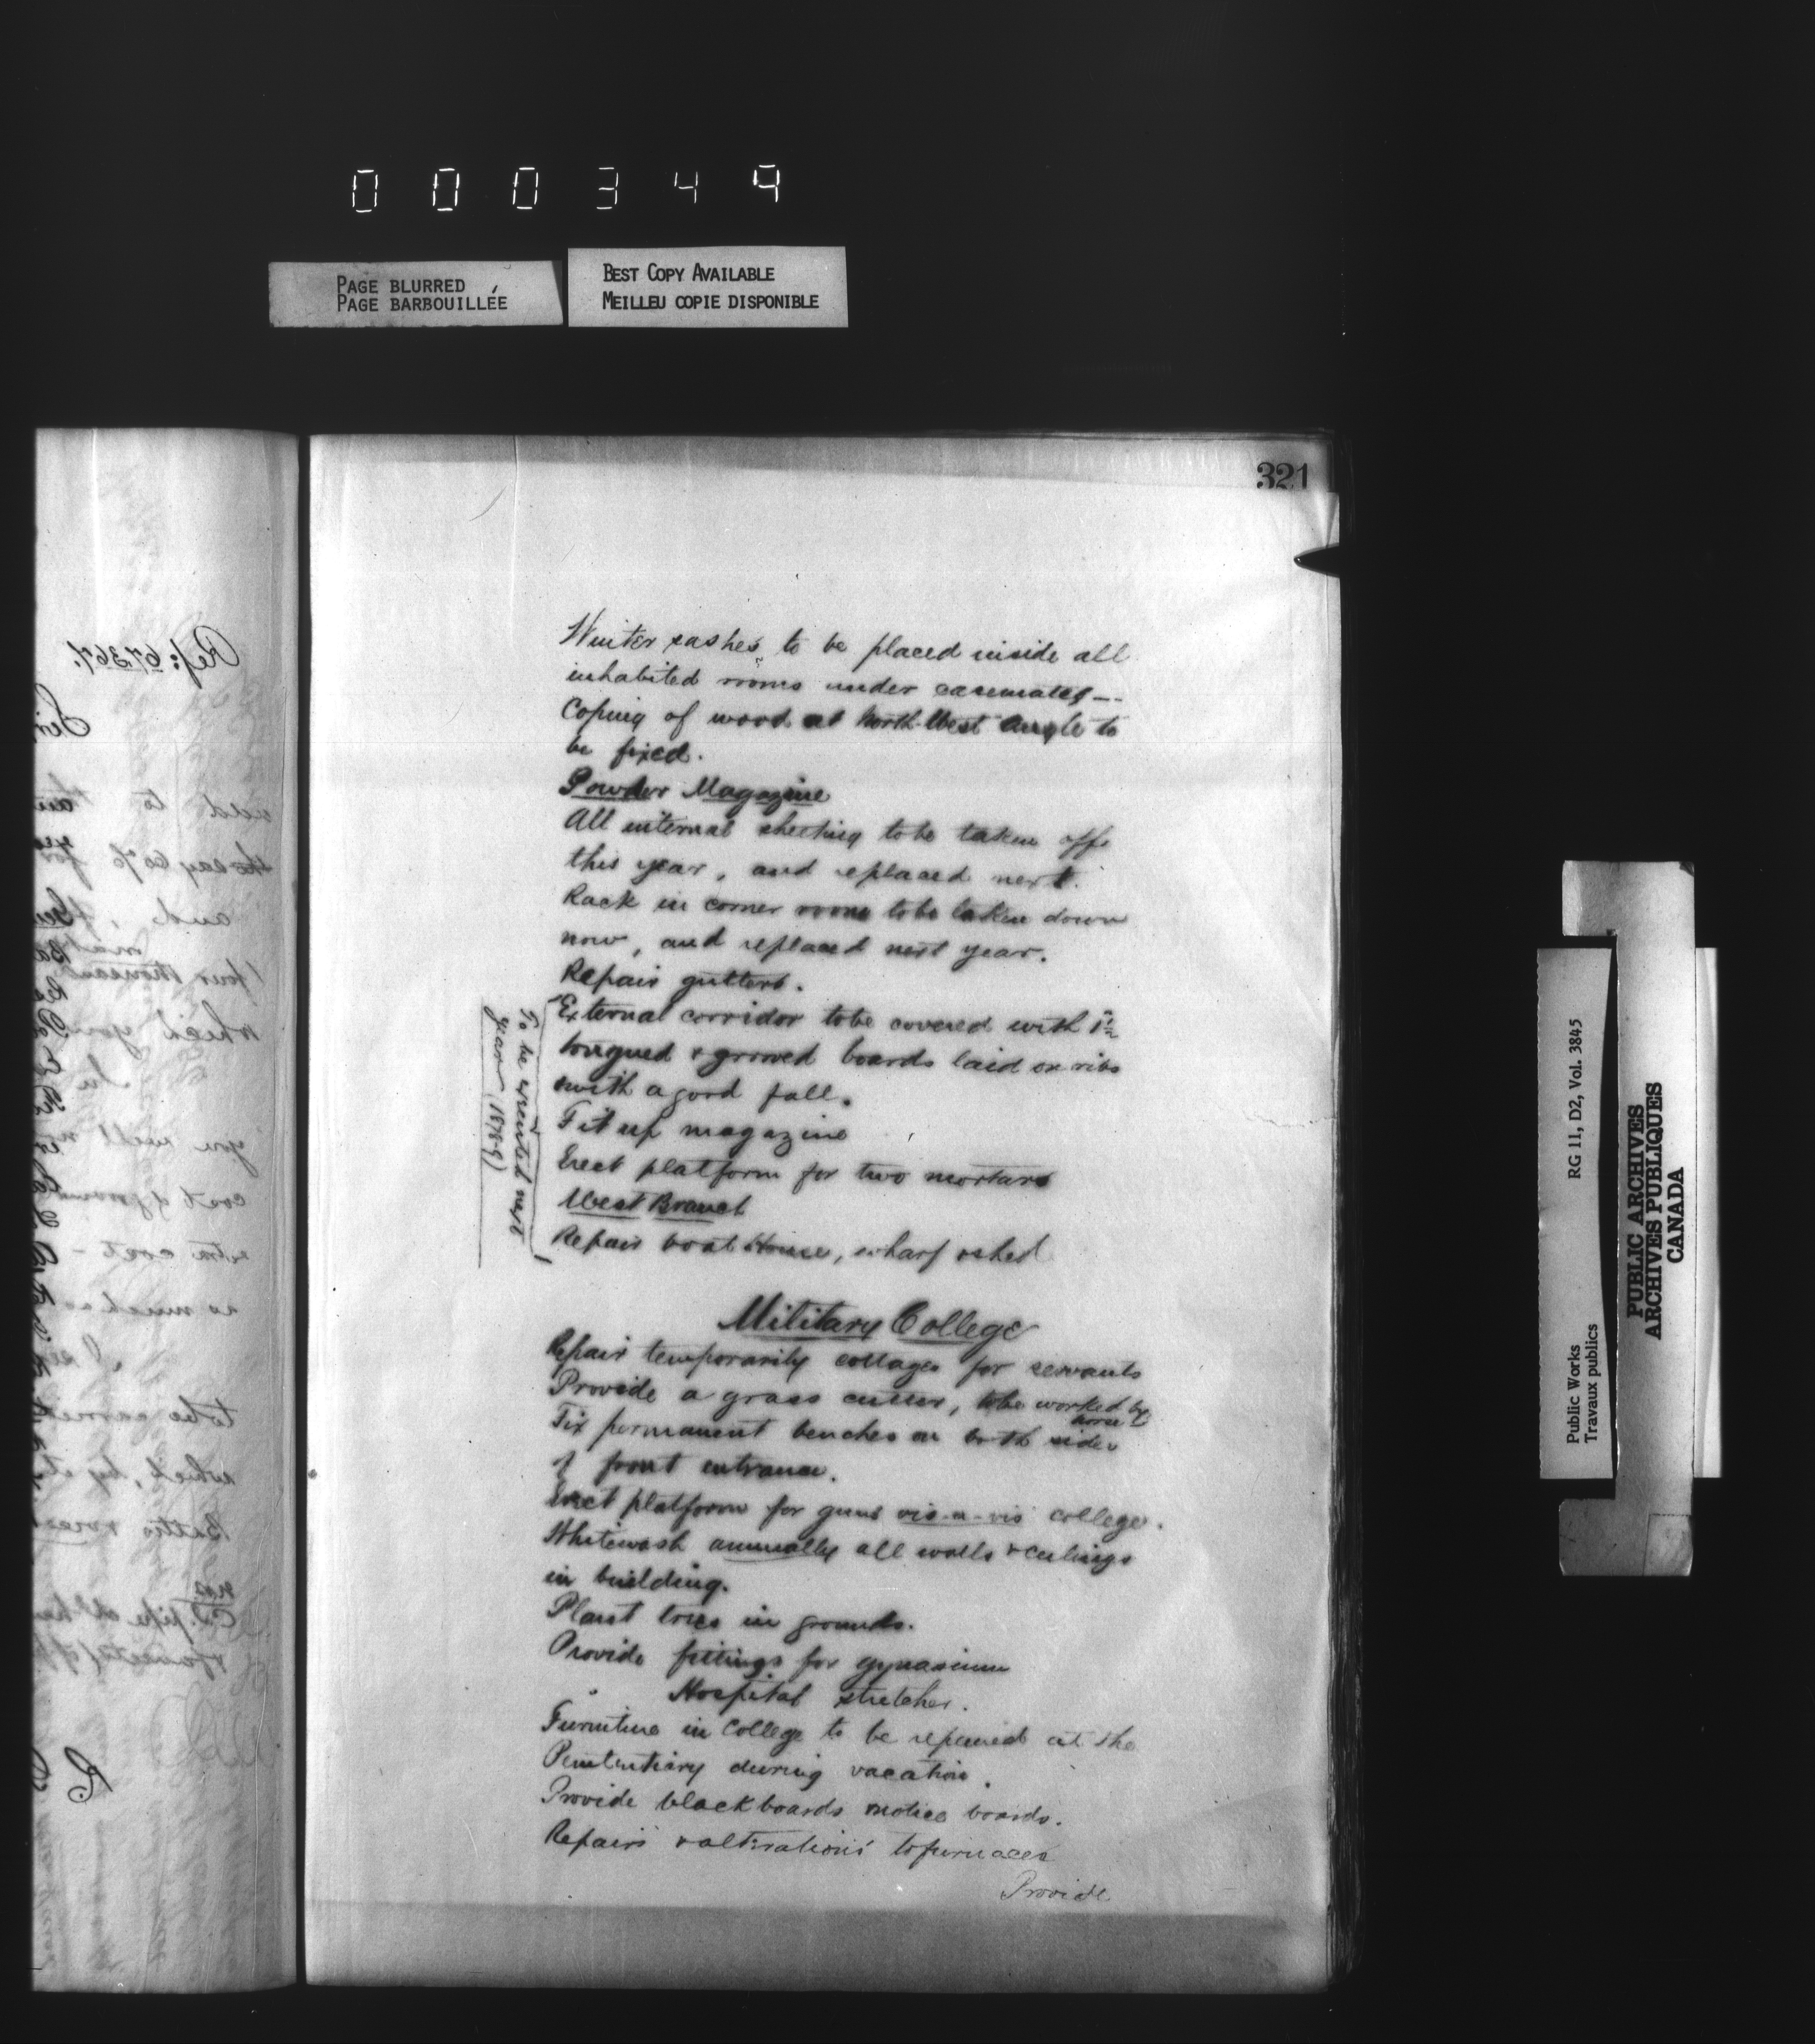 000349
PAGE BLURRED
PAGE BARBOUILLÉE
BEST COPY AVAILABLE
MEILLEU COPIE DISPONIBLE
321
Winter sashes to be placed inside all
inhabited rooms under casemates —
Coping of wood at North-West Angle to
be fixed.
Powder Magazine
All internal sheeting to be taken off
this year, and replaced next.
Rack in corner room to be taken down
now, and replaced next year.
Repair gutters.
External corridor to be covered with 1"
tongued & grooved boards laid on ribs
with a good fall.
Fit up magazine
Erect platform for two mortars
West Branch
Repair boat House, wharf & shed
To be executed next
year 1878-9)
Military College
Repair temporarily cottages for servants
Provide a grass cutter, to be worked by
horse
Fix permanent benches on both sides
of front entrance.
Erect platform for guns vis-a-vis college.
Whitewash annually all walls & ceilings
in building.
Plant trees in grounds.
Provide fittings for gymnasium
" Hospital stretcher.
Furniture in College to be repaired at the
Penitentiary during vacation.
Provide blackboards & notice boards.
Repairs & alterations to furnaces
Provide
Ref: 67367.
Sir
add to
the say 60% for
and
four thousand
which you
you will
cost of
extra cost -
as much as
to be
which, by
RG 11, D2, Vol. 3845
Public Works
Travaux publics
PUBLIC ARCHIVES
ARCHIVES PUBLIQUES
CANADA